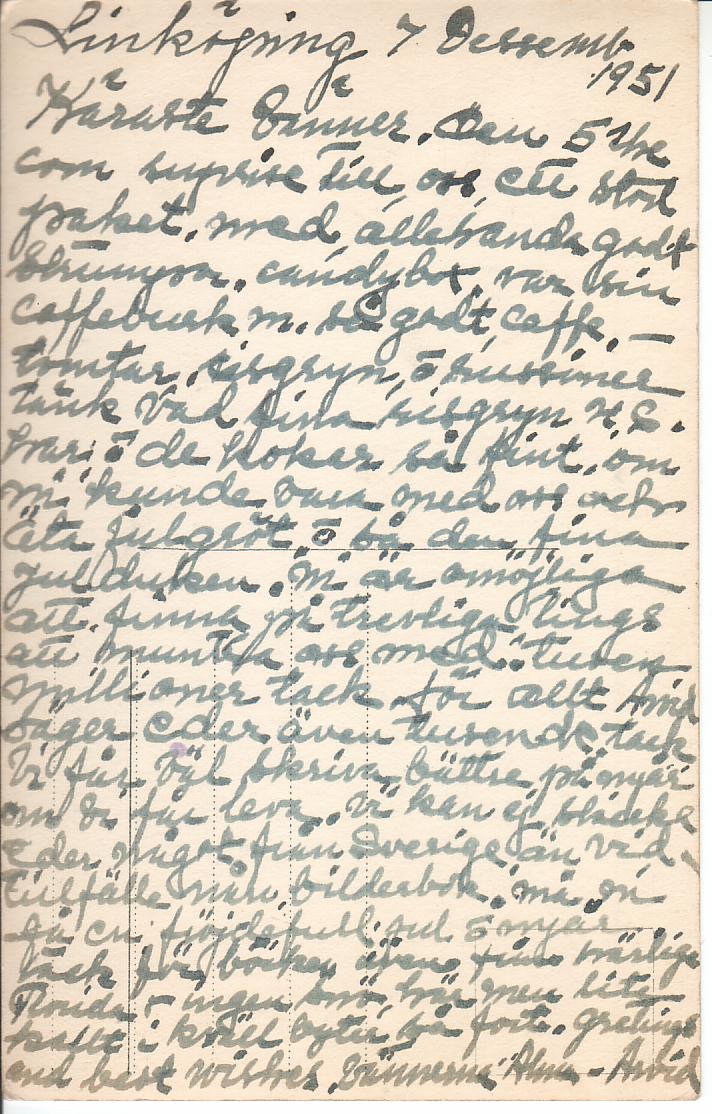 Linköping 7 Dessemb
1951
Käraste Vänner. Den 5 the
com suprise till oss, ett stor
paket, med allehanda godt
Strumpor, candybox, var sin
caffeburk m. så godt caffe, —
tomtar, risgryn, o russiner
tänk vad fina risgryn U.S.
har. o de kokar så fint, om
ni kunde vara med oss och
äta julgröt, o på den fina
julduken. ni är omöjliga
att finna på trevliga tings
att muntra oss med. tusen
millioner tack för allt Arvid
säger Eder även tusende tack
Vi får väl skriva bättre på nyår
om vi får leva. Vi kan ej skicka
Eder något från Sverige än vid
tillfälle någon bilderbok, må ni
få en fröjdefull jul o nyår
tack för böcker även från härliga
Florida - ingen snö här men lite
kallt i kväll bytte på fort. gretings
and best wishes, Vännerna Alma - Arvid